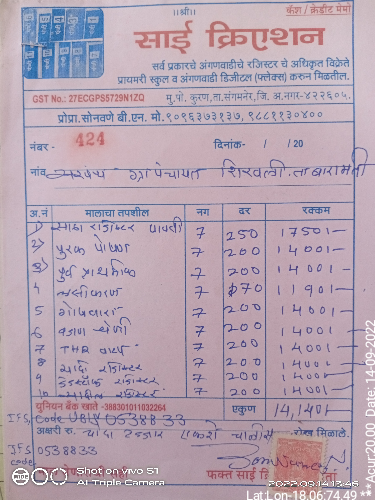 ॥श्री॥
कॅश / क्रेडीट मेमो
साई क्रिएशन
सर्व प्रकारचे अंगणवाडीचे रजिस्टर चे अधिकृत विक्रेते
प्रायमरी स्कुल व अंगणवाडी डिजीटल (फ्लेक्स) करुन मिळतील.
GST No.: 27ECGPS5729N1ZQ मु.पो. कुरण,ता.संगमनेर,जि. अ.नगर-४२२६०५.
प्रोप्रा.सोनवणे बी.एन. मो.९०९६३७३१३७, ९८८११३०४००
नंबर - 424 दिनांक- / /20
नांव सरपंच ग्रामपंचायत शिरवली ता बारामती
अ.नं मालाचा तपशील नग दर रक्कम
1) साठा रजिस्टर पावती 7 250 1750/-
2) पुरक पोषण 7 200 1400/-
3) पुर्व प्राथमिक 7 200 1400/-
4 लसीकरण 7 170 1190/-
5 गोषवारा 7 200 1400/-
6 वजन 7 200 1400/-
7 THR वाटप 7 200 1400/-
8 रजिस्टर 7 200 1400/-
9 रजिस्टर 7 200 1400/-
10 रजिस्टर 7 200 1400/-
युनियन बैंक खाते -388301011032264 एकुण 14,140/-
IFS, Code UBIN 0538833
अक्षरी रु. चौदा हजार एकशे चाळीस रोख मिळाले.
IFS 0538833
code
फक्त साई
Shot on vivo S1
AI Triple Camera
2022.09.14 13:46
Lat:Lon-18.06:74.49
**Acur:20.00 Date: 14-09-2022